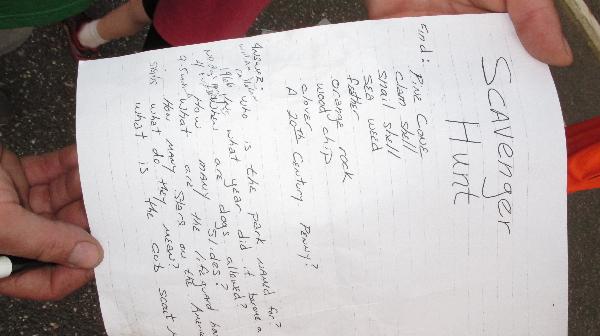 SCAVenger
Hunt
Find: Pine Cone
clam shell
snail shell
SEA weed
feather
orange rock
wood chip
clover
A 20th Century Penny?
Answer:
who is the park named for?
1966 what year did it become a
when are dogs allowed?
How many slides?
What are the lifeguard ha
How many Stars on the America
what do they mean?
what is the cub scout